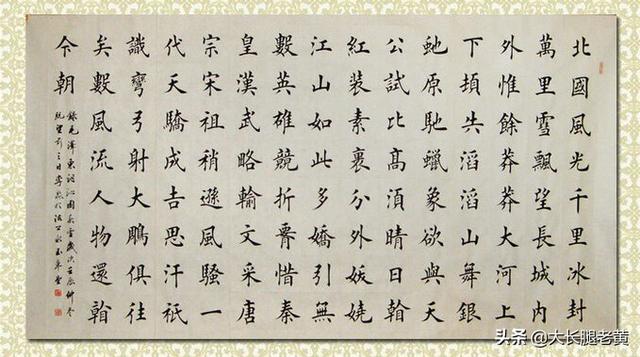 北國風光千里冰封
萬里雪飄望長城內
外惟餘莽莽大河上
下頓失滔滔山舞銀
虵原馳蠟象欲與天
公試比髙須晴日看
紅裝素裹分外妖嬈
江山如此多嬌引無
數英雄競折腰惜秦
皇漢武略輸文采唐
宗宋祖稍遜風騷一
代天驕成吉思汗祇
識彎弓射大鵰俱往
矣數風流人物還看
今朝
錄毛澤東詞沁園春雪歲次壬辰仲冬
头条 @大长腿老黄